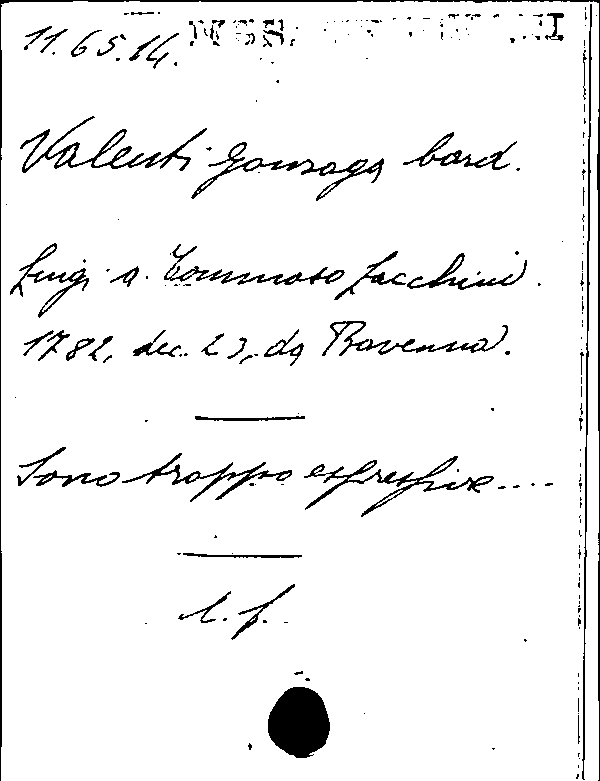 11.65.14. MSS.
Valenti Gonzaga card.
Luigi a Tommaso Zacchini.
1782, dec. 23, da Ravenna.
Sono troppo espressive....
l. f.